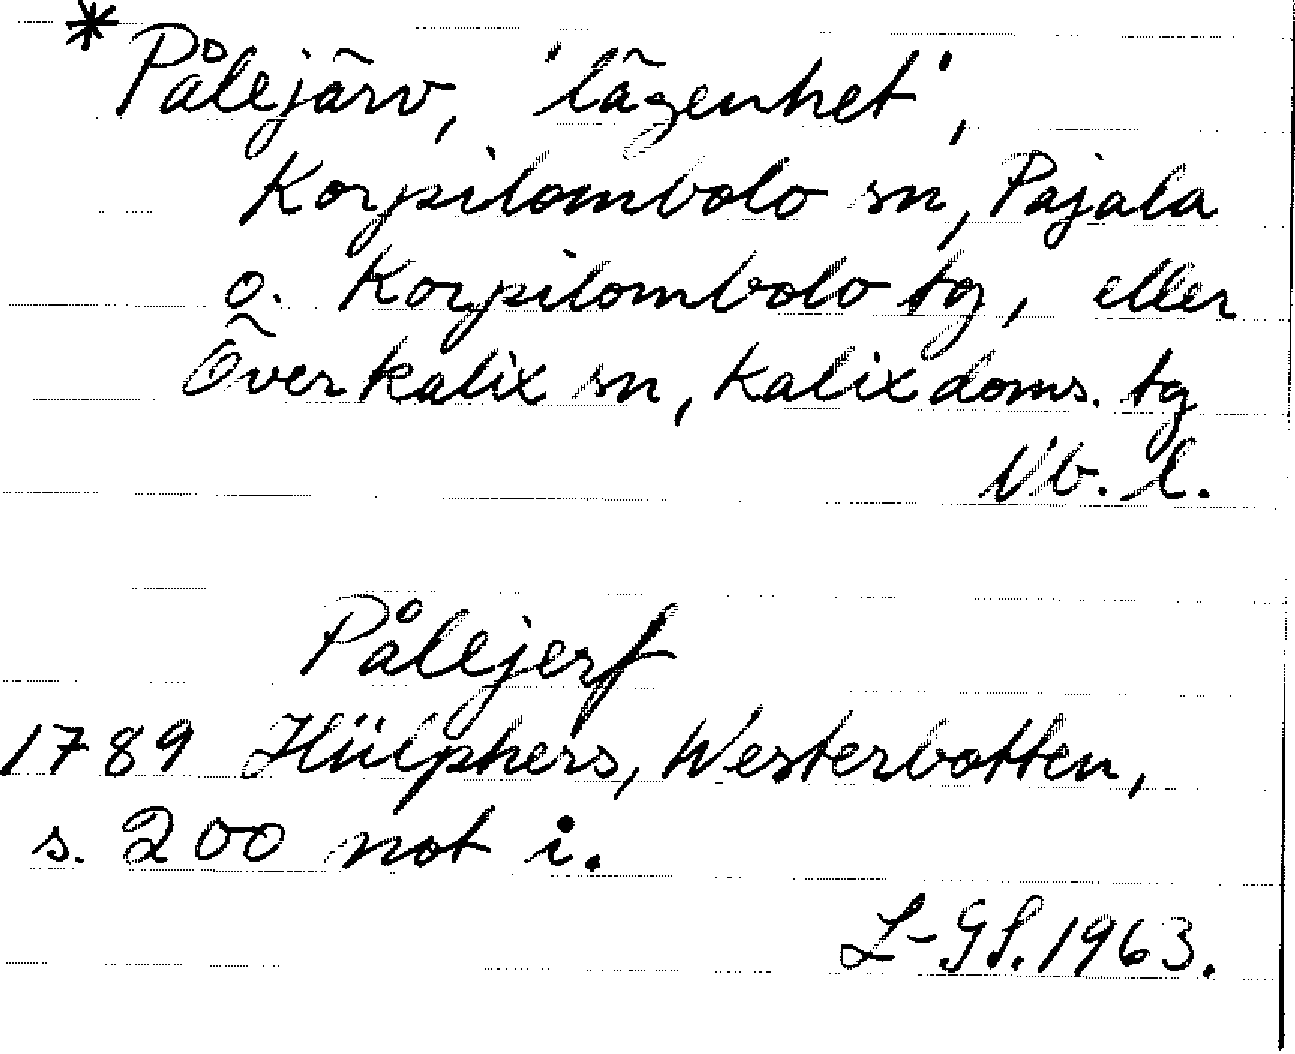 * Pålejärv, 'lägenhet',
Korpilombolo sn, Pajala
o. Korpilombolo tg, eller
Överkalix sn, Kalix doms. tg
Nb. l.
Pålejerf
1789 Hülphers, Westerbotten,
s. 200 not i.
L-GS. 1963.